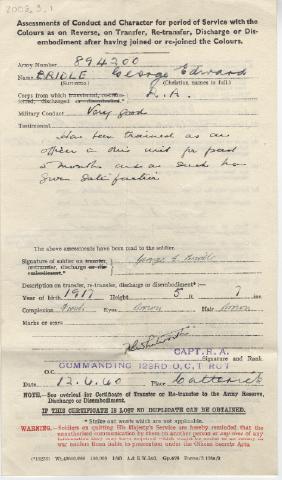 2008.3.1
Assessments of Conduct and Character for period of Service with the
Colours as on Reverse, on Transfer, Re-transfer, Discharge or Dis-
embodiment after having joined or re-joined the Colours.
Army Number 894200
Name BRIDLE George Edward
(Surname) (Christian names in full)
Corps from which transferred, re-trans-
ferred, discharged or disembodied.* R.A.
Military Conduct Very good
Testimonial
Has been trained as an
officer in this unit for past
5 months and as such has
given satisfaction
The above assessments have been read to the soldier.
Signature of soldier on transfer,
re-transfer, discharge or dis-
embodiment.* George E. Bridle
Description on transfer, re-transfer, discharge or disembodiment* :—
Year of birth 1917 Height 5 ft 7 ins
Complexion Fresh Eyes Brown Hair Brown
Marks or scars
CAPT. R.A.
Signature and Rank
O.C. COMMANDING 123RD O.C.T. RGT
Date 12.6.40 Place Catterick
NOTE.—See overleaf for Certificate of Transfer or Re-transfer to the Army Reserve,
Discharge or Disembodiment.
IF THIS CERTIFICATE IS LOST NO DUPLICATE CAN BE OBTAINED.
* Strike out words which are not applicable.
WARNING.—Soldiers on quitting His Majesty's Service are hereby reminded that the
unauthorised communication by them to another person at any time of any
information they may have acquired which might be useful to an enemy in
war renders them liable to prosecution under the Official Secrets Acts